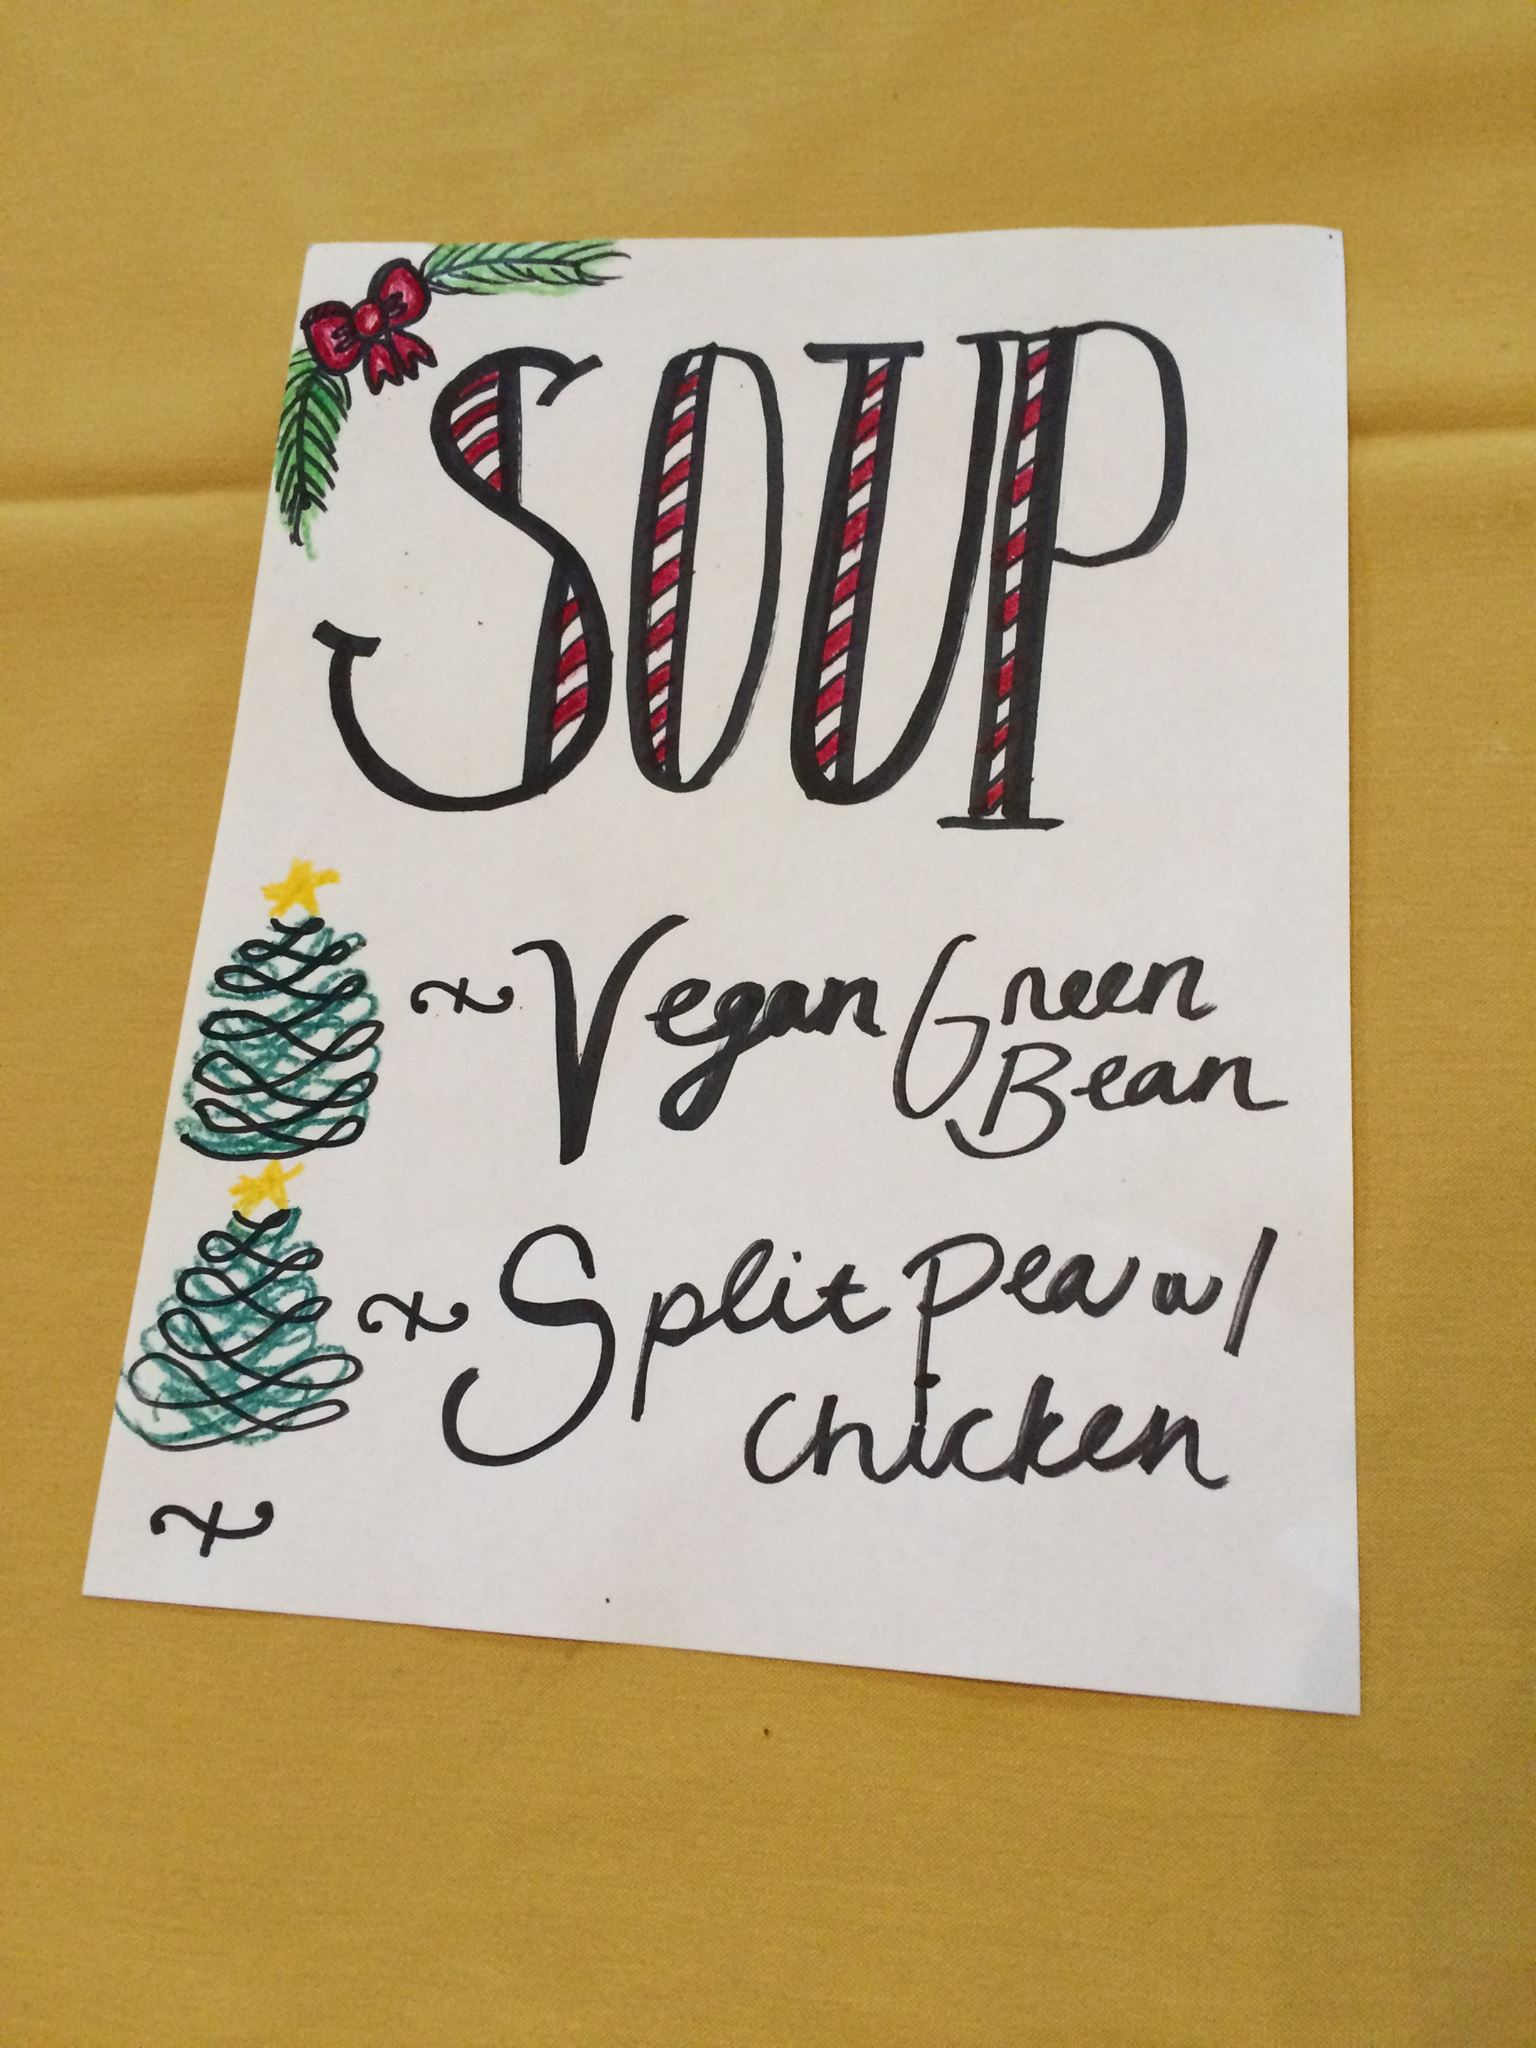 SOUP
Vegan Green
Bean
Split Pea w/
Chicken